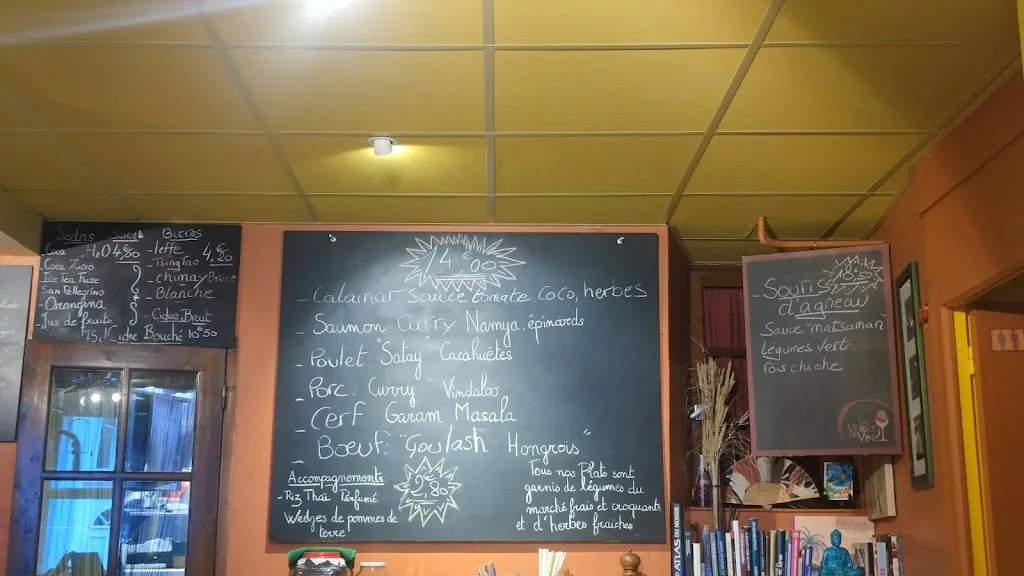 Sodas Bières
Coca 4,80
Coca Zéro
Ice tea Pêche
San Pellegrino
- Orangina
- Jus de fruits
- Leffe 4,€
- TsingTao 80
- chimay
- Blanche
Cidre Brut
Cidre Bouché 10€50
14€00
- Calamar Sauce tomate Coco, herbes
- Saumon Curry Namya épinards
- Poulet "Satay" Cacahuètes
- Porc : Curry Vindaloo
- Cerf Garam Masala
- Bœuf "Goulash Hongrois"
Accompagnements
- Riz Thaï Parfumé
Wedges de pommes de
terre
2€80
Tous nos Plats sont
garnis de légumes du
marché frais et croquants
et d'herbes fraiches
- Souris
d'agneau
Sauce "matsaman"
Légumes vert
Pois chiche
ATLAS DU MONDE